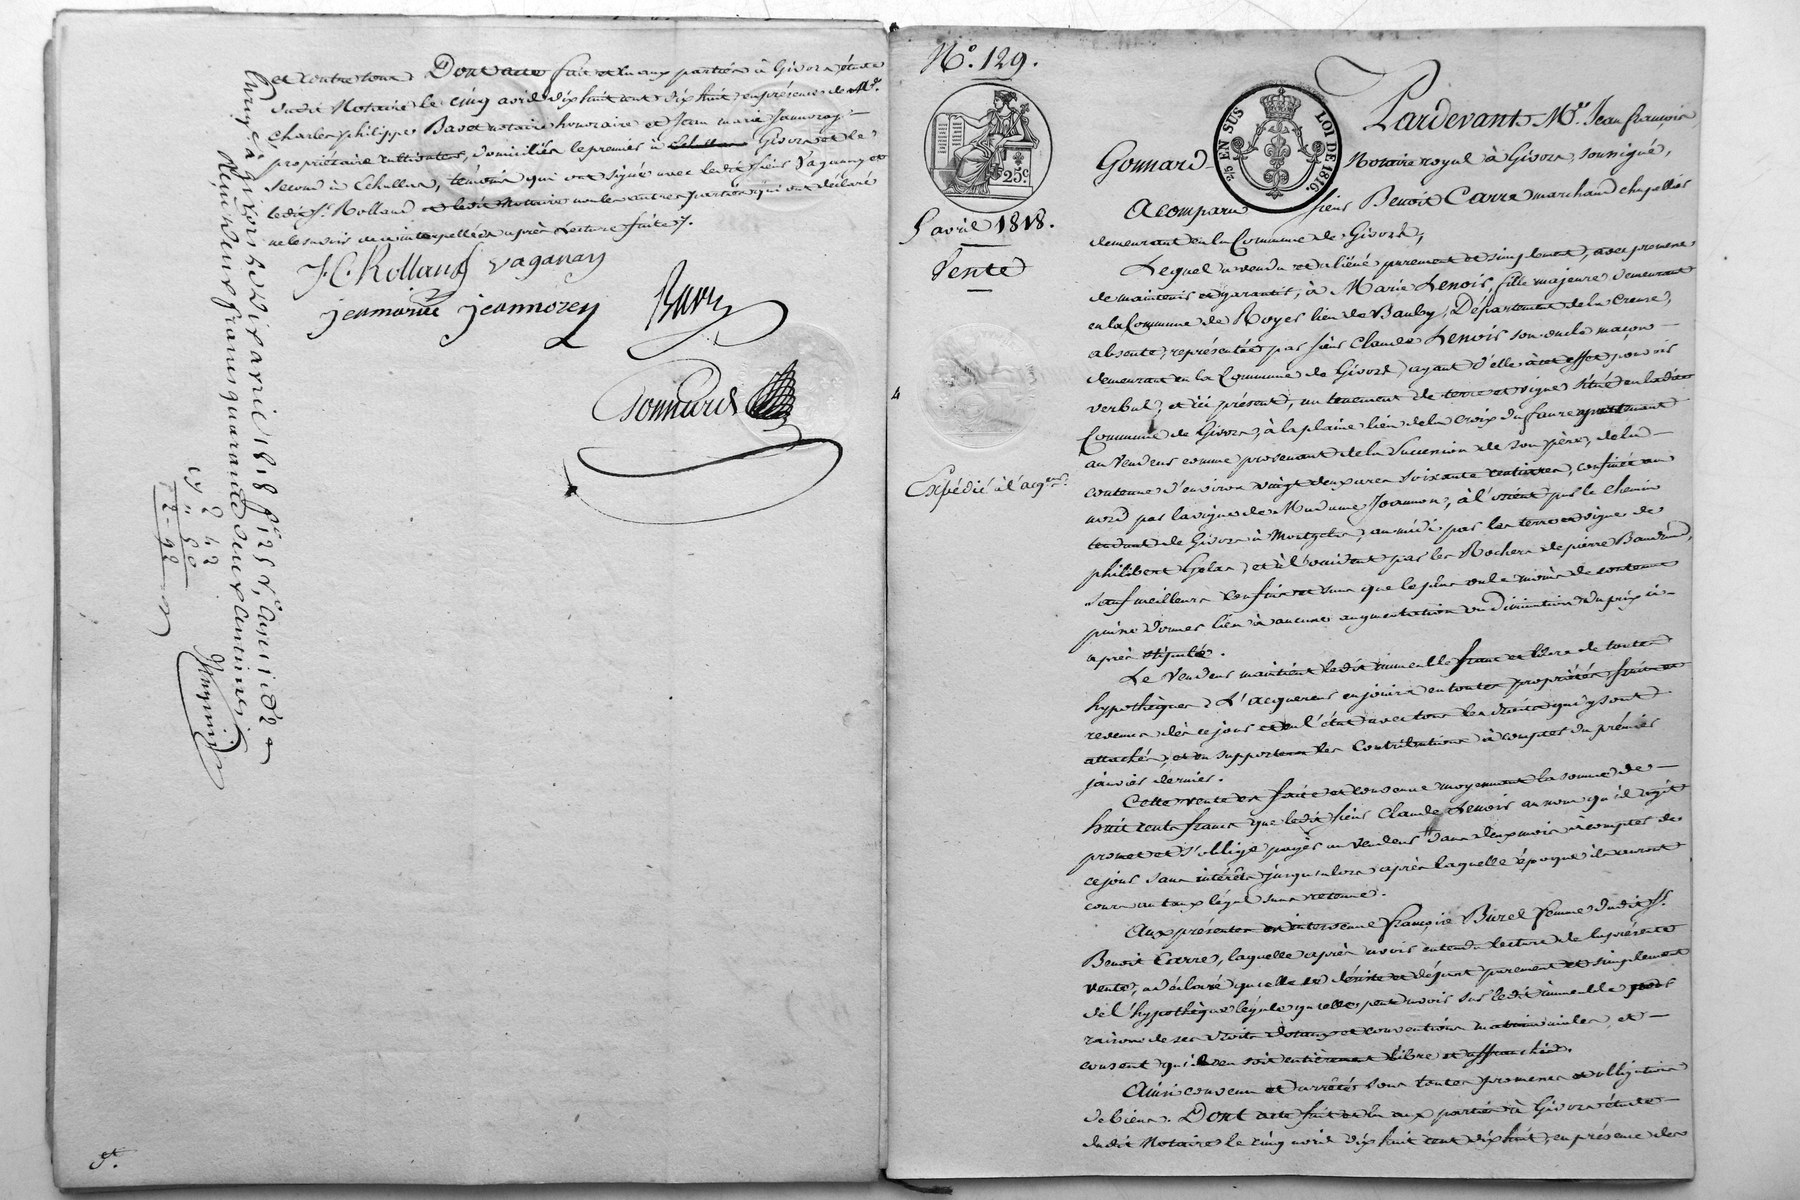 et contre tous. Dont acte fait et lu aux parties à Givors, étude
dudit Notaire le cinq avril dix huit cent dix huit, en présence de Mr.
Charles philippe Bavet notaire honoraire et Jean marie Jamorey
propriétaire domiciliés le premier à Givors et le
second à Echallas, témoins qui ont signé avec ledit sieur Vaganay et
ledit Sr. Rolland et ledit Notaire non les autres parties qui ont déclaré
ne le savoir de ce interpellées après Lecture faite.
J. C. Rolland vaganay
jeanmarie jeanmorey Bavet
Gonnard
Enregé à givors le dix avril 1818 fo. 25
Reçu deux francs quarante deux centimes
2 42
N°. 129.
25c
5 avril 1818.
Vente
Expédié à l'acqeur.
25c EN SUS LOI DE 1816.
Pardevant Mr. Jean françois
Gonnard Notaire royal à Givors, soussigné,
A comparu sieur Benoit Carre marchand chapellier
demeurant en la Commune de Givors,
Lequel a vendu et aliéné purement et simplement, avec promesse
de maintenir et garantir, à Marie Lenoir, fille majeure demeurant
en la Commune de Royer lieu de Bauby, Département de la Creuse,
absente, représentée par sieur Claude Lenoir son oncle maçon
demeurant en la Commune de Givors, ayant d'elle à cet effet pouvoir
verbal, et ici présent, un tenement de terre et vigne situé en ladite
Commune de Givors, à la plaine lieu de la croix du faure appartenant
au Vendeur comme provenant de la Succession de son père, de la
contenue d'environ vingt deux ares soixante centiares, confinée au
nord par la vigne de Madame Joannon, à l'orient par le chemin
tendant de Givors à Montgelas, au midi par les terre et vigne de
philibert Gelas, et à l'occident par les Rochers de pierre Baudrand,
sauf meilleurs confins et sans que le plus ou le moins de contenue
puisse donner lieu à aucune augmentation ou diminution du prix ci-
après stipulé.
Le Vendeur maintient ledit immeuble franc et libre de toutes
hypothèques. L'acquereur en jouira en toutes propriétés, fruits et
revenus dès ce jour et en l'état avec tous les droits qui y sont
attachés, et en supportera les Contributions à compter du premier
janvier dernier.
Cette vente est faite et convenue moyennant la somme de
huit cents francs que ledit sieur Claude Lenoir au nom qu'il agit
promet et s'oblige payer au Vendeur dans deux mois à compter de
ce jour sans intérêts jusqu'alors après laquelle époque ils auront
cours au taux légal sans retenue.
Aux présentes est intervenue françoise Burel femme dudit Sr.
Benoit Carre, laquelle après avoir entendu lecture de la présente
vente, a déclaré qu'elle se désiste et départ purement et simplement
de l'hypothèque légale qu'elle peut avoir sur ledit immeuble pour
raison de ses droits dotaux et conventions matrimoniales, et
consent qu'il en soit entièrement libre et affranchi.
Ainsi convenu et arrêté sous toutes promesses et obligations
de biens. Dont acte fait et lu aux parties à Givors étude
dudit Notaire le cinq avril dix huit cent dix huit, en présence de